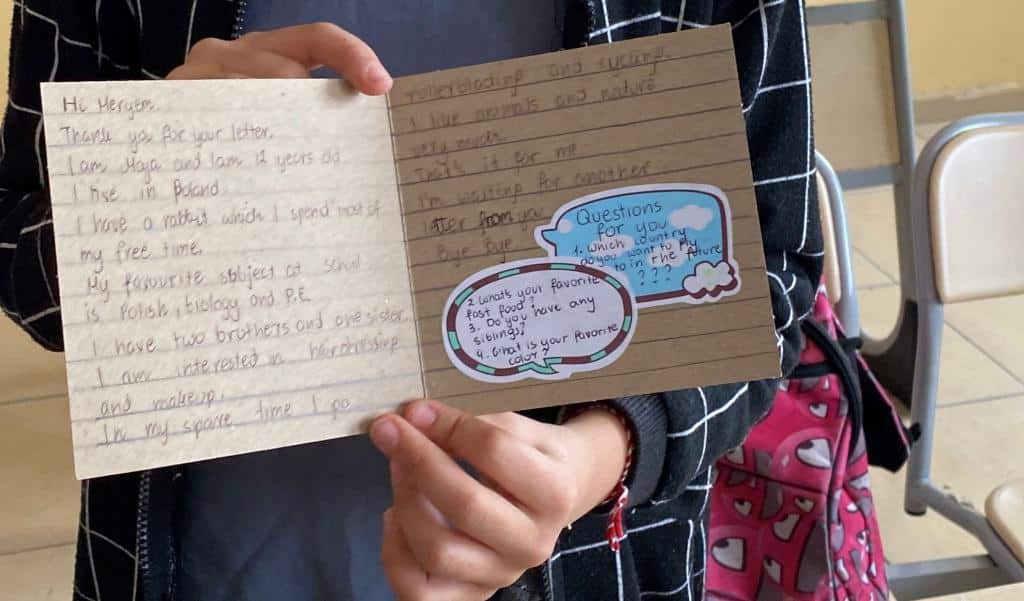 Hi Meryem.
Thank you for your letter.
I am Maja and I am 12 years old
I live in Poland
I have a rabbit which I spend most of
my free time.
My favourite sbject at school
is Polish, biology and P.E.
I have two brothers and one sister
I am interested in hairdressing
and makeup.
In my spare time I go
rollerblading and cycling.
I like animals and nature
very much.
That's it for me
I'm waiting for another
letter from you
Bye Bye
Questions
for you
1. Which country
do you want to fly
to in the future
? ? ?
2. What's your favorite
fast food?
3. Do you have any
siblings?
4. What is your favorite
color?